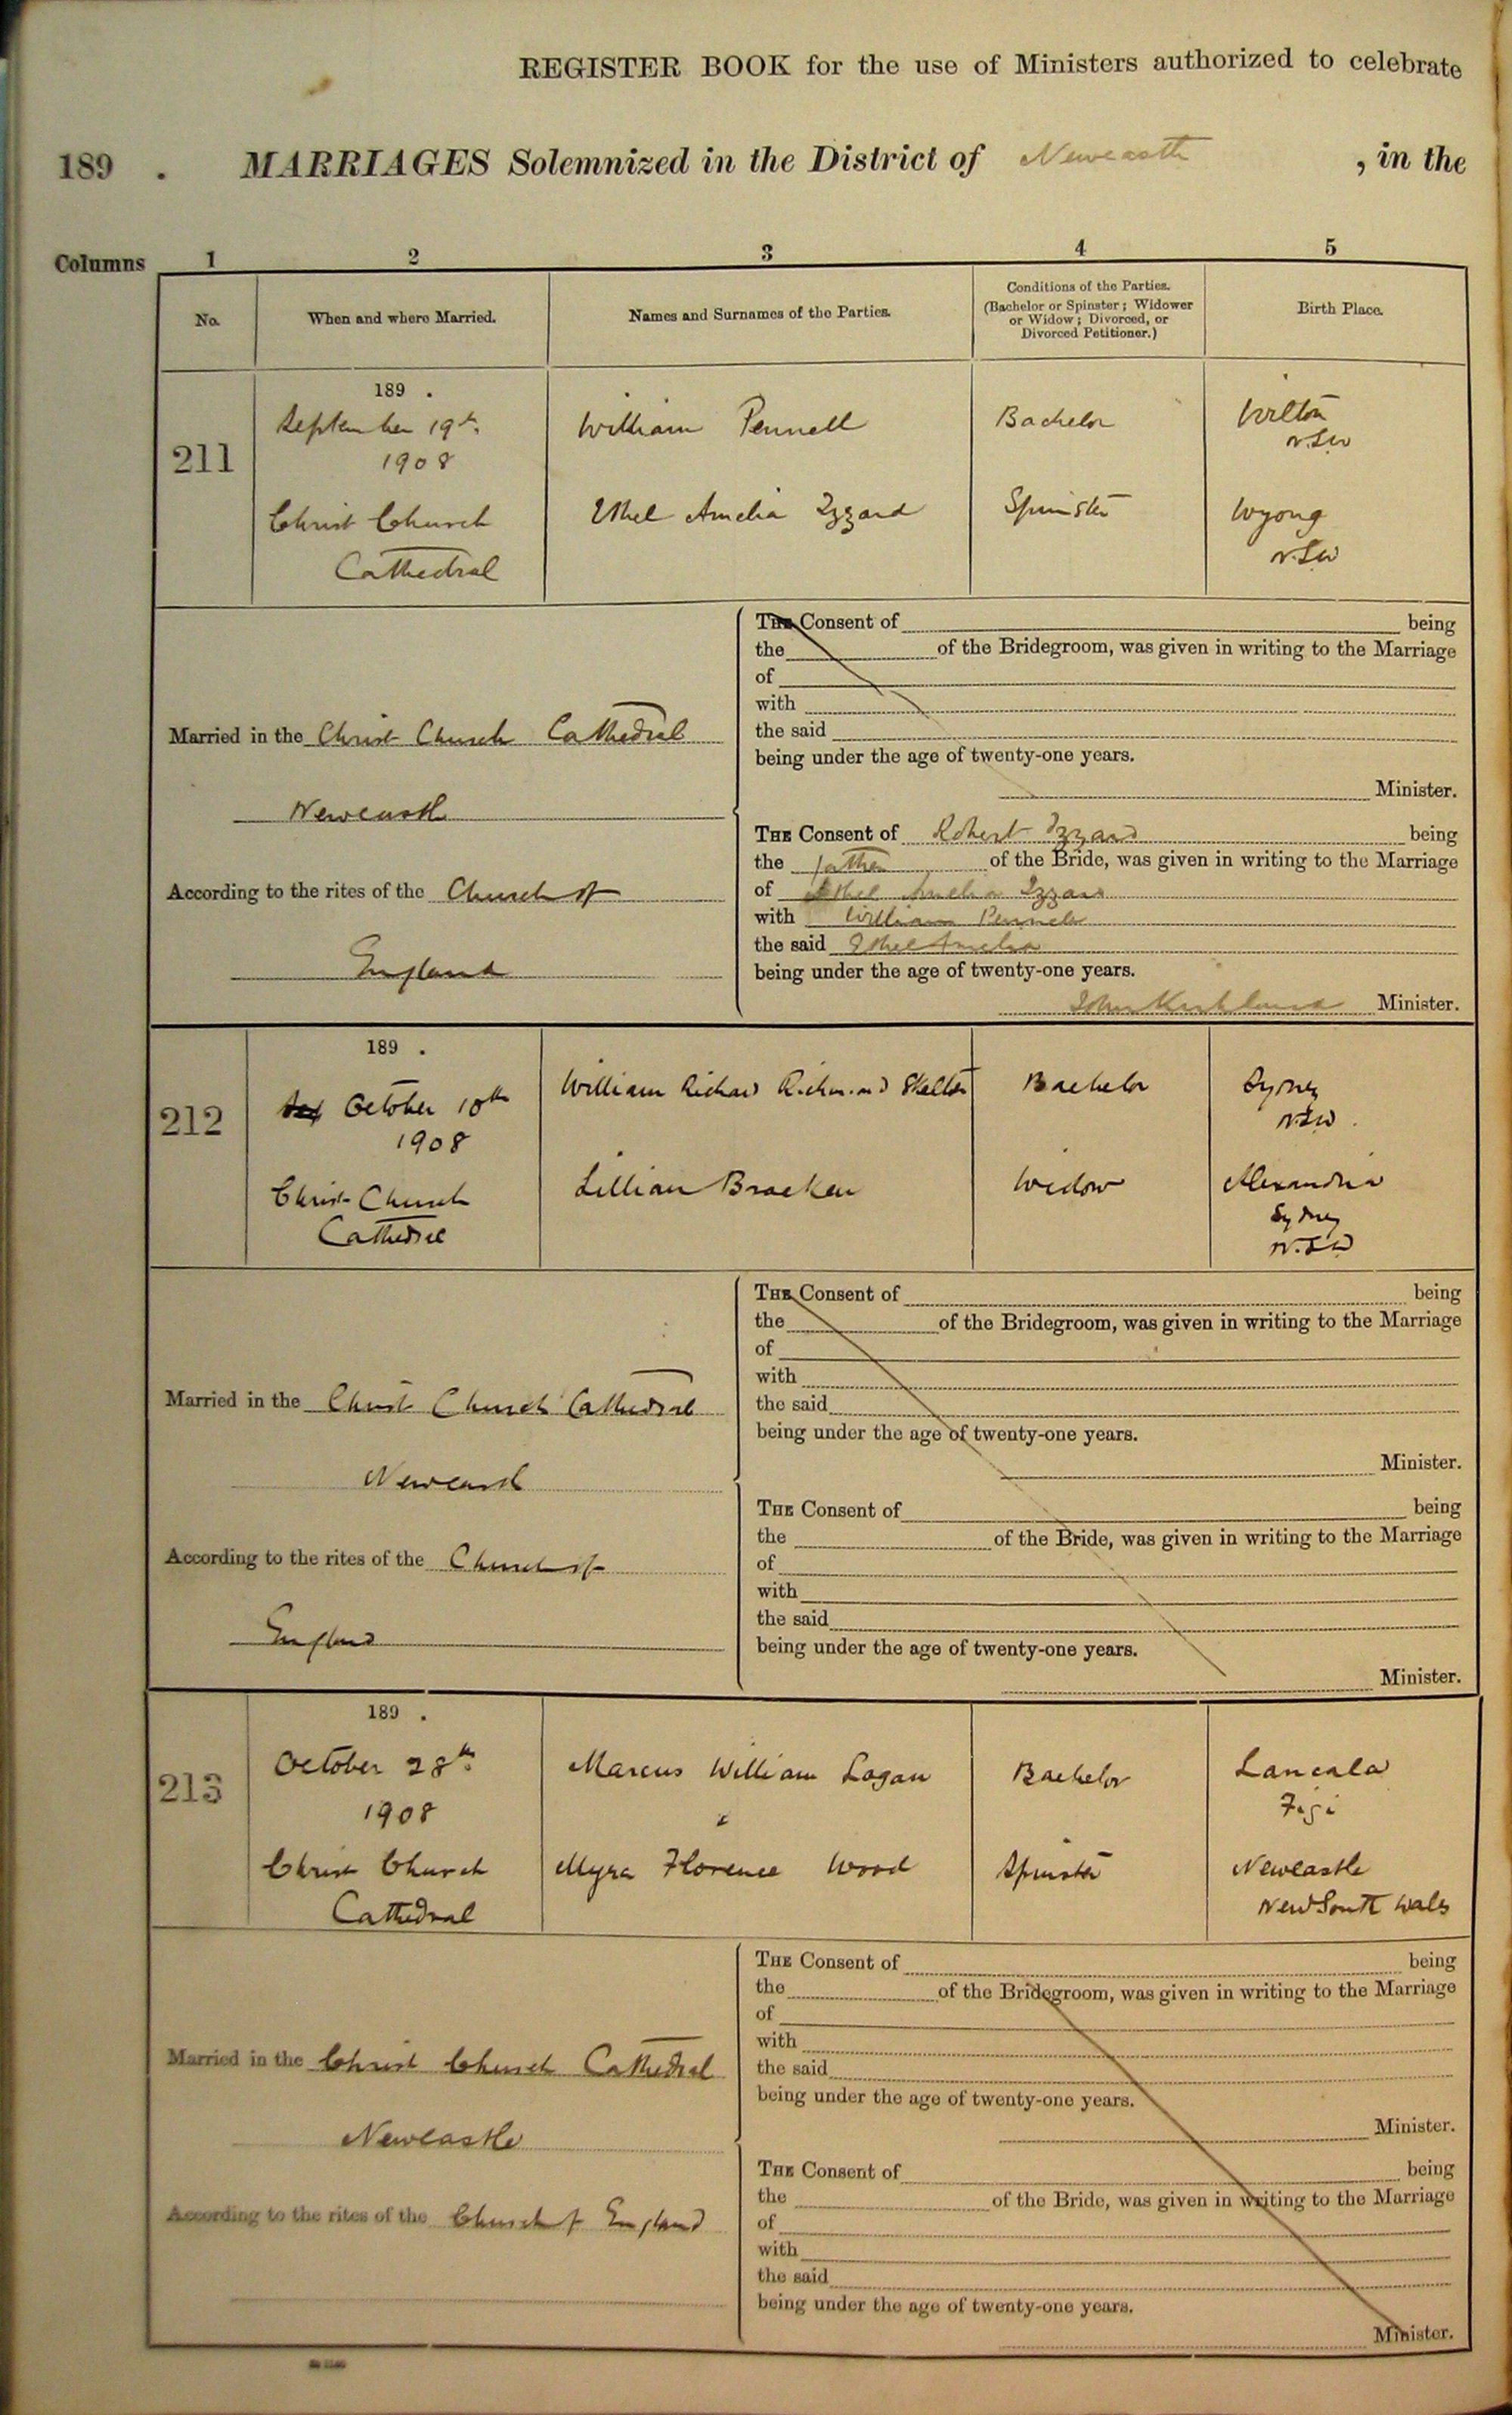 REGISTER BOOK for the use of Ministers authorized to celebrate
189 . MARRIAGES Solemnized in the District of Newcastle , in the
Columns 1 2 3 4 5
No. When and where Married. Names and Surnames of the Parties. Conditions of the Parties. (Bachelor or Spinster; Widower or Widow; Divorced, or Divorced Petitioner.) Birth Place.
189 .
211 September 19th. William Pennell Bachelor Wilton
1908 N.S.W
Christ Church Ethel Amelia Izzard Spinster Wyong
Cathedral N.S.W
THE Consent of being
the of the Bridegroom, was given in writing to the Marriage
of
with
Married in the Christ Church Cathedral
the said
being under the age of twenty-one years.
Minister.
Newcastle
THE Consent of Robert Izzard being
the father of the Bride, was given in writing to the Marriage
According to the rites of the Church of
of Ethel Amelia Izzard
with William Pennell
the said Ethel Amelia
England
being under the age of twenty-one years.
John Kirkland Minister.
189 .
212 October 10th William Richard Richmond Skelton Bachelor Sydney
1908 N.S.W.
Christ Church Lillian Bracken Widow Alexandria
Cathedral Sydney
N.S.W
THE Consent of being
the of the Bridegroom, was given in writing to the Marriage
of
with
Married in the Christ Church Cathedral
the said
being under the age of twenty-one years.
Minister.
Newcastle
THE Consent of being
the of the Bride, was given in writing to the Marriage
According to the rites of the Church of
of
with
the said
England
being under the age of twenty-one years.
Minister.
189 .
213 October 28th. Marcus William Logan Bachelor Lancala
1908 Fiji
Christ Church Myra Florence Wood Spinster Newcastle
Cathedral New South Wales
THE Consent of being
the of the Bridegroom, was given in writing to the Marriage
of
with
Married in the Christ Church Cathedral
the said
being under the age of twenty-one years.
Minister.
Newcastle
THE Consent of being
the of the Bride, was given in writing to the Marriage
According to the rites of the Church of England
of
with
the said
being under the age of twenty-one years.
Minister.